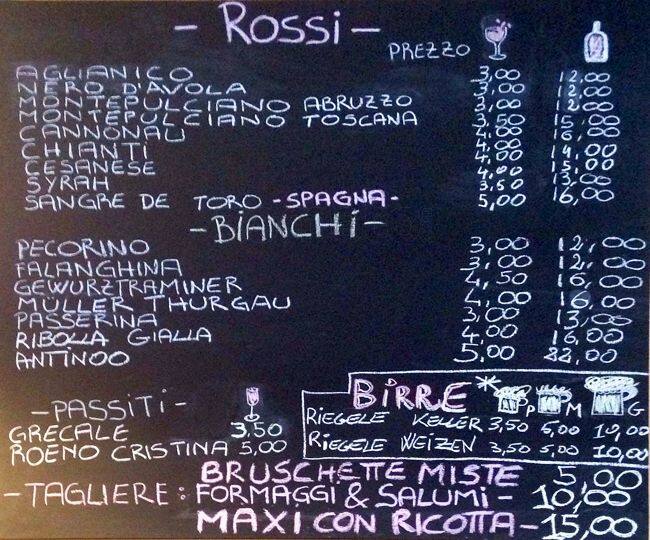 - ROSSI -
PREZZO
AGLIANICO 3,00 12,00
NERO D'AVOLA 3,00 12,00
MONTEPULCIANO ABRUZZO 3,00 12,00
MONTEPULCIANO TOSCANA 3,50 15,00
CANNONAU 4,00 16,00
CHIANTI 4,00 14,00
CESANESE 4,00 15,00
SYRAH 3,50 13,00
SANGRE DE TORO - SPAGNA - 5,00 16,00
- BIANCHI -
PECORINO 3,00 12,00
FALANGHINA 3,00 12,00
GEWURZTRAMINER 4,50 16,00
MÜLLER THURGAU 4,00 16,00
PASSERINA 3,00 13,00
RIBOLLA GIALLA 4,00 16,00
ANTINOO 5,00 22,00
- PASSITI -
GRECALE 3,50
ROENO CRISTINA 5,00
BIRRE * P M G
RIEGELE KELLER 3,50 5,00 10,00
RIEGELE WEIZEN 3,50 5,00 10,00
BRUSCHETTE MISTE 5,00
- TAGLIERE : FORMAGGI & SALUMI - 10,00
MAXI CON RICOTTA - 15,00